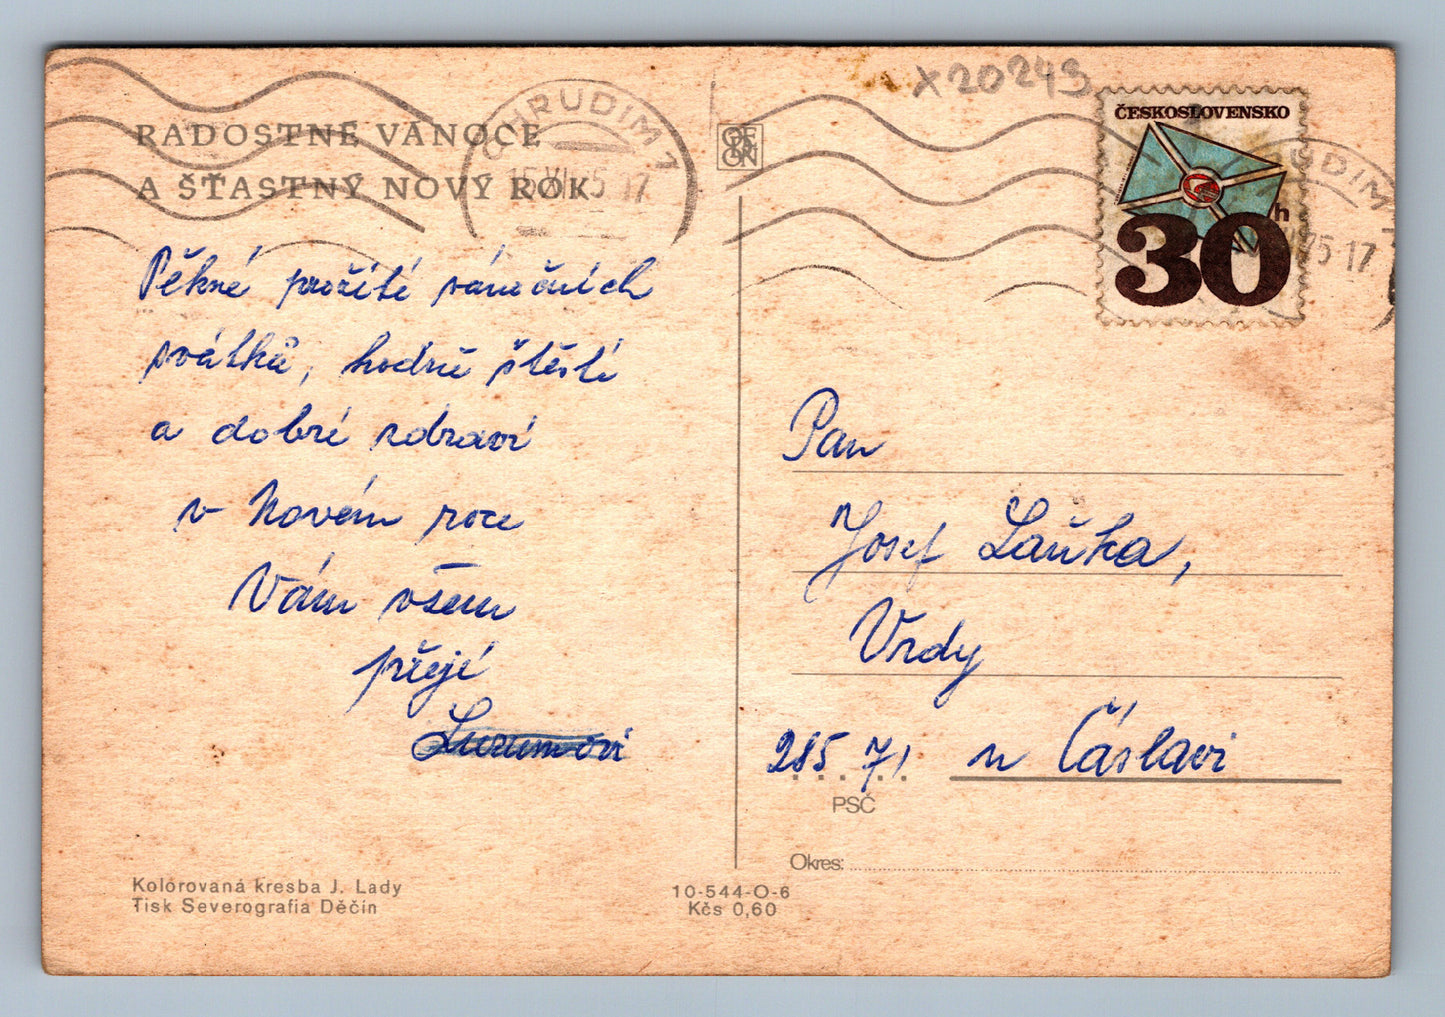 x20243
CHRUDIM 1
RADOSTNÉ VÁNOCE
A ŠŤASTNÝ NOVÝ ROK
Pěkné prožití vánočních
svátků, hodně štěstí
a dobré zdraví
v Novém roce
Vám všem
přejí
Kolorovaná kresba J. Lady
Tisk Severografia Děčín
10-544-O-6
Kčs 0,60
ČESKOSLOVENSKO
30 h
75 17
Pan
Josef Lauka,
Vrdy
285 71 u Čáslavi
PSČ
Okres: